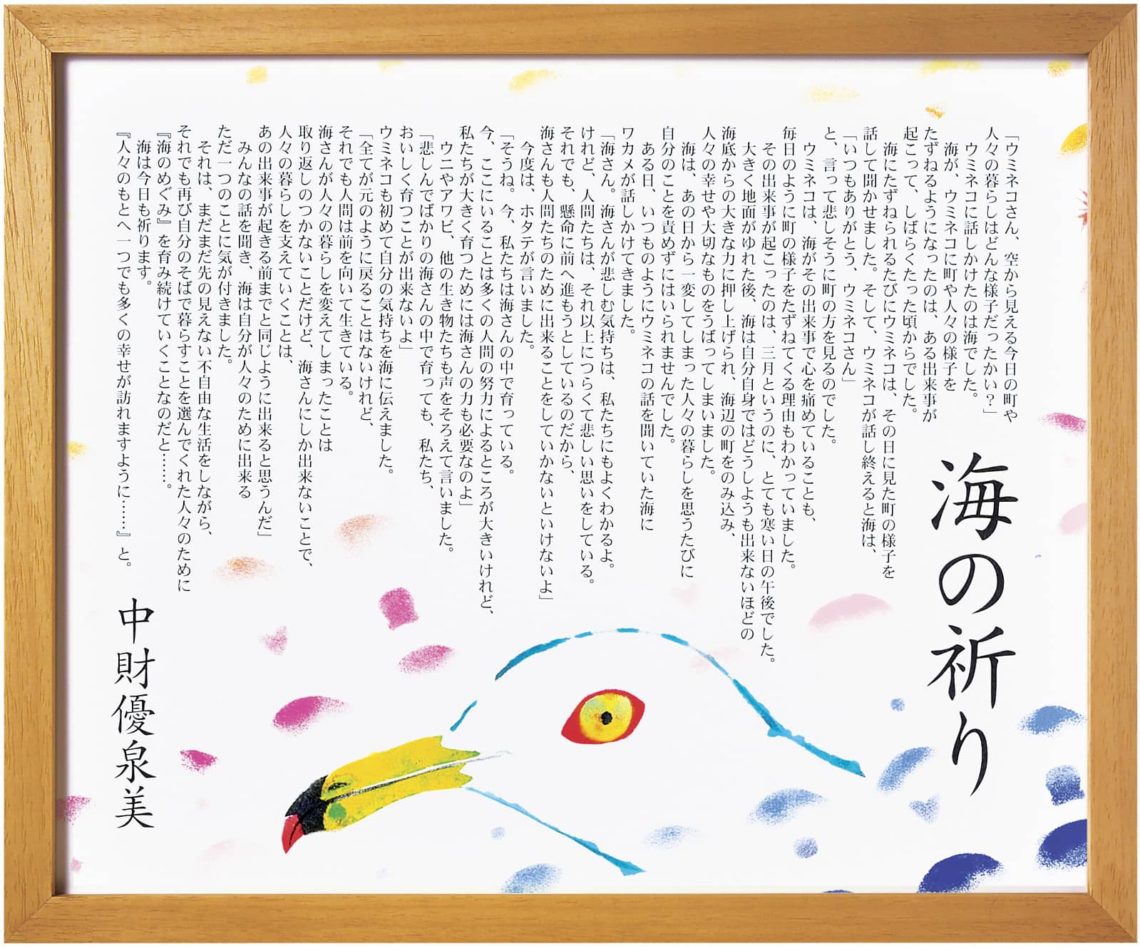 海の祈り
「ウミネコさん、空から見える今日の町や
人々の暮らしはどんな様子だったかい？」
ウミネコに話しかけたのは海でした。
海が、ウミネコに町や人々の様子を
たずねるようになったのは、ある出来事が
起こって、しばらくたった頃からでした。
海にたずねられるたびにウミネコは、その日に見た町の様子を
話して聞かせました。そして、ウミネコが話し終えると海は、
「いつもありがとう、ウミネコさん」
と、言って悲しそうに町の方を見るのでした。
ウミネコは、海がその出来事で心を痛めていることも、
毎日のように町の様子をたずねてくる理由もわかっていました。
その出来事が起こったのは、三月というのに、とても寒い日の午後でした。
大きく地面がゆれた後、海は自分自身ではどうしようも出来ないほどの
海底からの大きな力に押し上げられ、海辺の町をのみ込み、
人々の幸せや大切なものをうばってしまいました。
海は、あの日から一変してしまった人々の暮らしを思うたびに
自分のことを責めずにはいられませんでした。
ある日、いつものようにウミネコの話を聞いていた海に
ワカメが話しかけてきました。
「海さん。海さんが悲しむ気持ちは、私たちにもよくわかるよ。
けれど、人間たちは、それ以上につらくて悲しい思いをしている。
それでも、懸命に前へ進もうとしているのだから、
海さんも人間たちのために出来ることをしていかないといけないよ」
今度は、ホタテが言いました。
「そうね。今、私たちは海さんの中で育っている。
今、ここにいることは多くの人間の努力によるところが大きいけれど、
私たちが大きく育つためには海さんの力も必要なのよ」
ウニやアワビ、他の生き物たちも声をそろえて言いました。
「悲しんでばかりの海さんの中で育っても、私たち、
おいしく育つことが出来ないよ」
ウミネコも初めて自分の気持ちを海に伝えました。
「全てが元のように戻ることはないけれど、
それでも人間は前を向いて生きている。
海さんが人々の暮らしを変えてしまったことは
取り返しのつかないことだけど、海さんにしか出来ないことで、
人々の暮らしを支えていくことは、
あの出来事が起きる前までと同じように出来ると思うんだ」
みんなの話を聞き、海は自分が人々のために出来る
ただ一つのことに気が付きました。
それは、まだまだ先の見えない不自由な生活をしながら、
それでも再び自分のそばで暮らすことを選んでくれた人々のために
『海のめぐみ』を育み続けていくことなのだと……。
海は今日も祈ります。
『人々のもとへ一つでも多くの幸せが訪れますように……』と。
中財優泉美